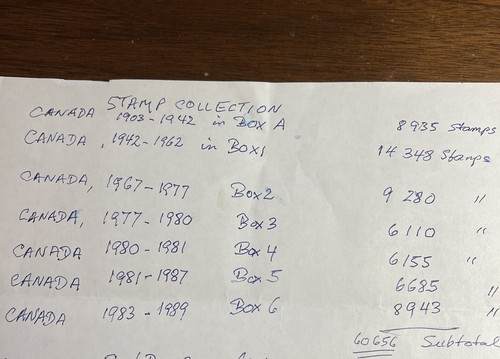 STAMP COLLECTION
CANADA 1903-1942 in BOX A 8935 Stamps
CANADA, 1942-1962 in BOX 1 14 348 Stamps
CANADA, 1967-1977 Box 2 9 280 "
CANADA, 1977-1980 Box 3 6110 "
CANADA 1980-1981 Box 4 6155 "
CANADA 1981-1987 Box 5 6685 "
CANADA 1983-1989 Box 6 8943 "
60656 Subtotal